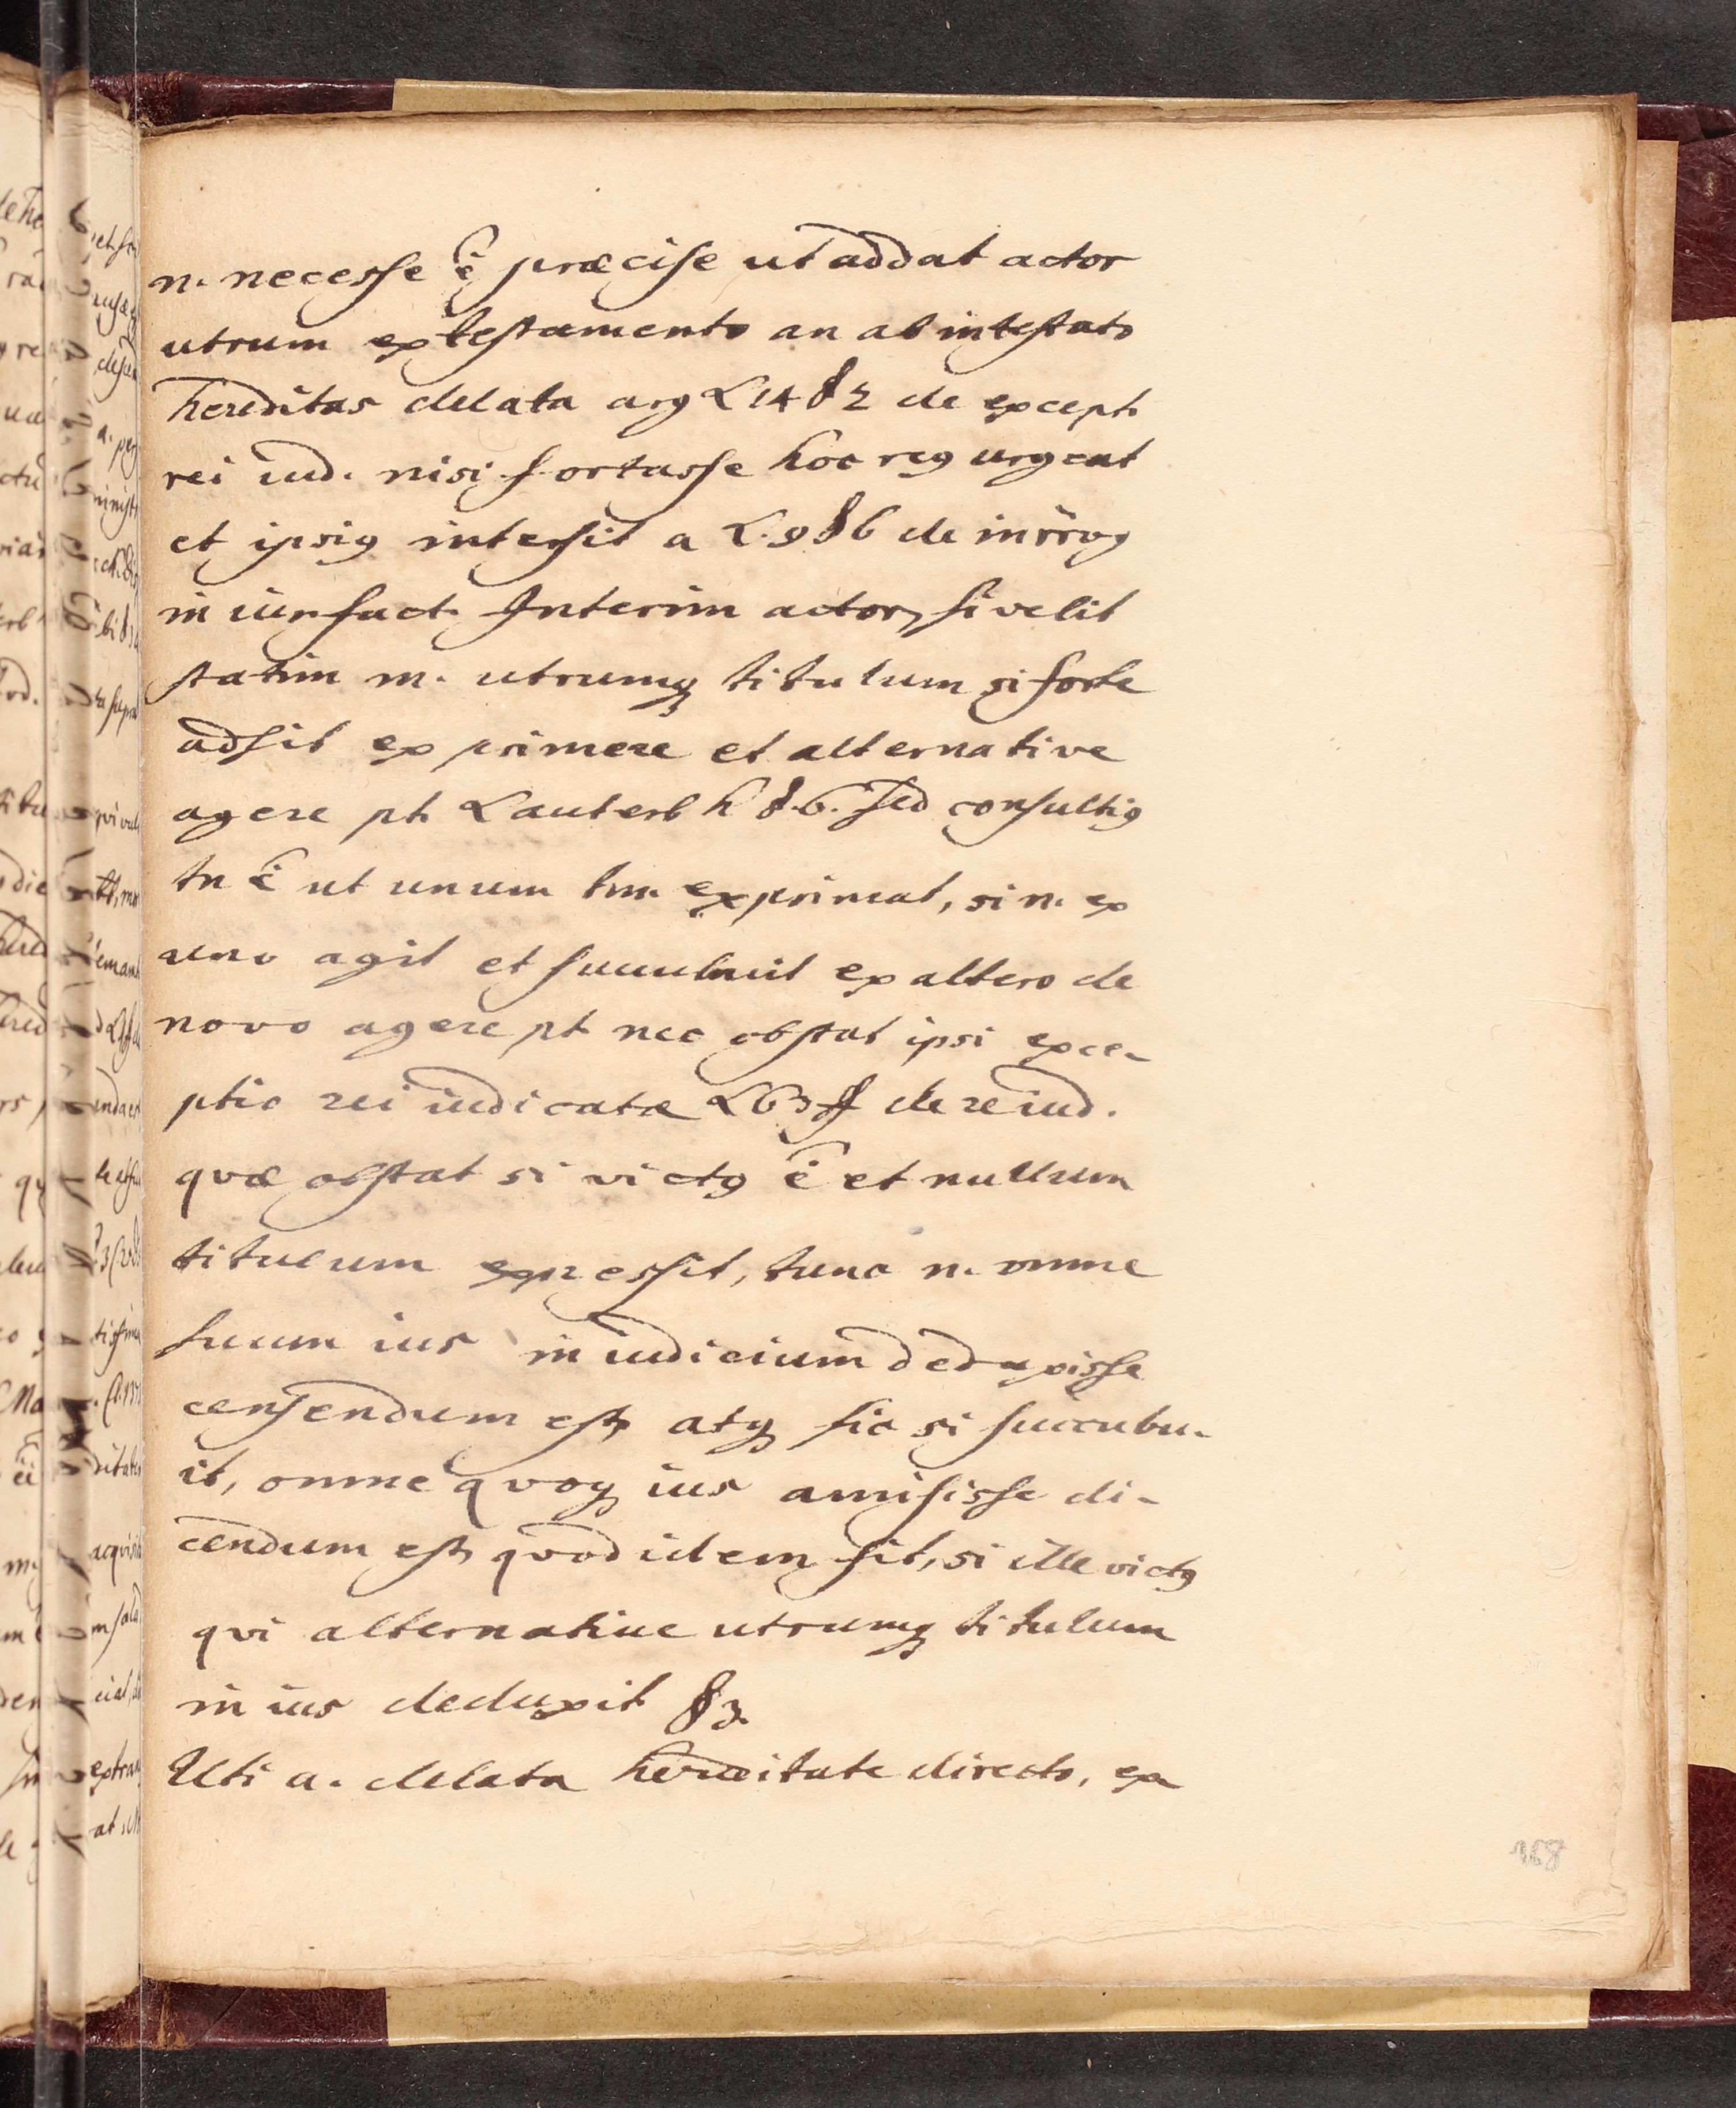 n. necesse ē præcise ut addat actor
utrum ex testamento an ab intestato
hereditas delata arg L 14 § 2 de except.
rei iud. nisi fortasse hoc reg urgeat
et ipsig intersit a L. 9 § 6 de interrog
in iur fact. Interim actor, si velit
statim m. utrumq titulum si forte
adsit exprimere et alternative
agere pt. Lauterb h § 6. Sed consultig
tn ē ut unum tm. exprimat, si n. ex
uno agit et succubuit ex altero de
novo agere pt nec obstat ipsi exce-
ptio rei iudicatæ L 63 ff de re iud.
qvæ obstat si victg ē et nullum
titulum expressit, tunc n. omne
suum ius in iudicium deduxisse
censendum est, atq sic si succubu-
it, omne qvoq ius amisisse di-
cendum est, qvod idem fit, si ille victg
qvi alternative utrumq titulum
in ius deduxit § 3.
Uti a. delata hereditate directo, ex